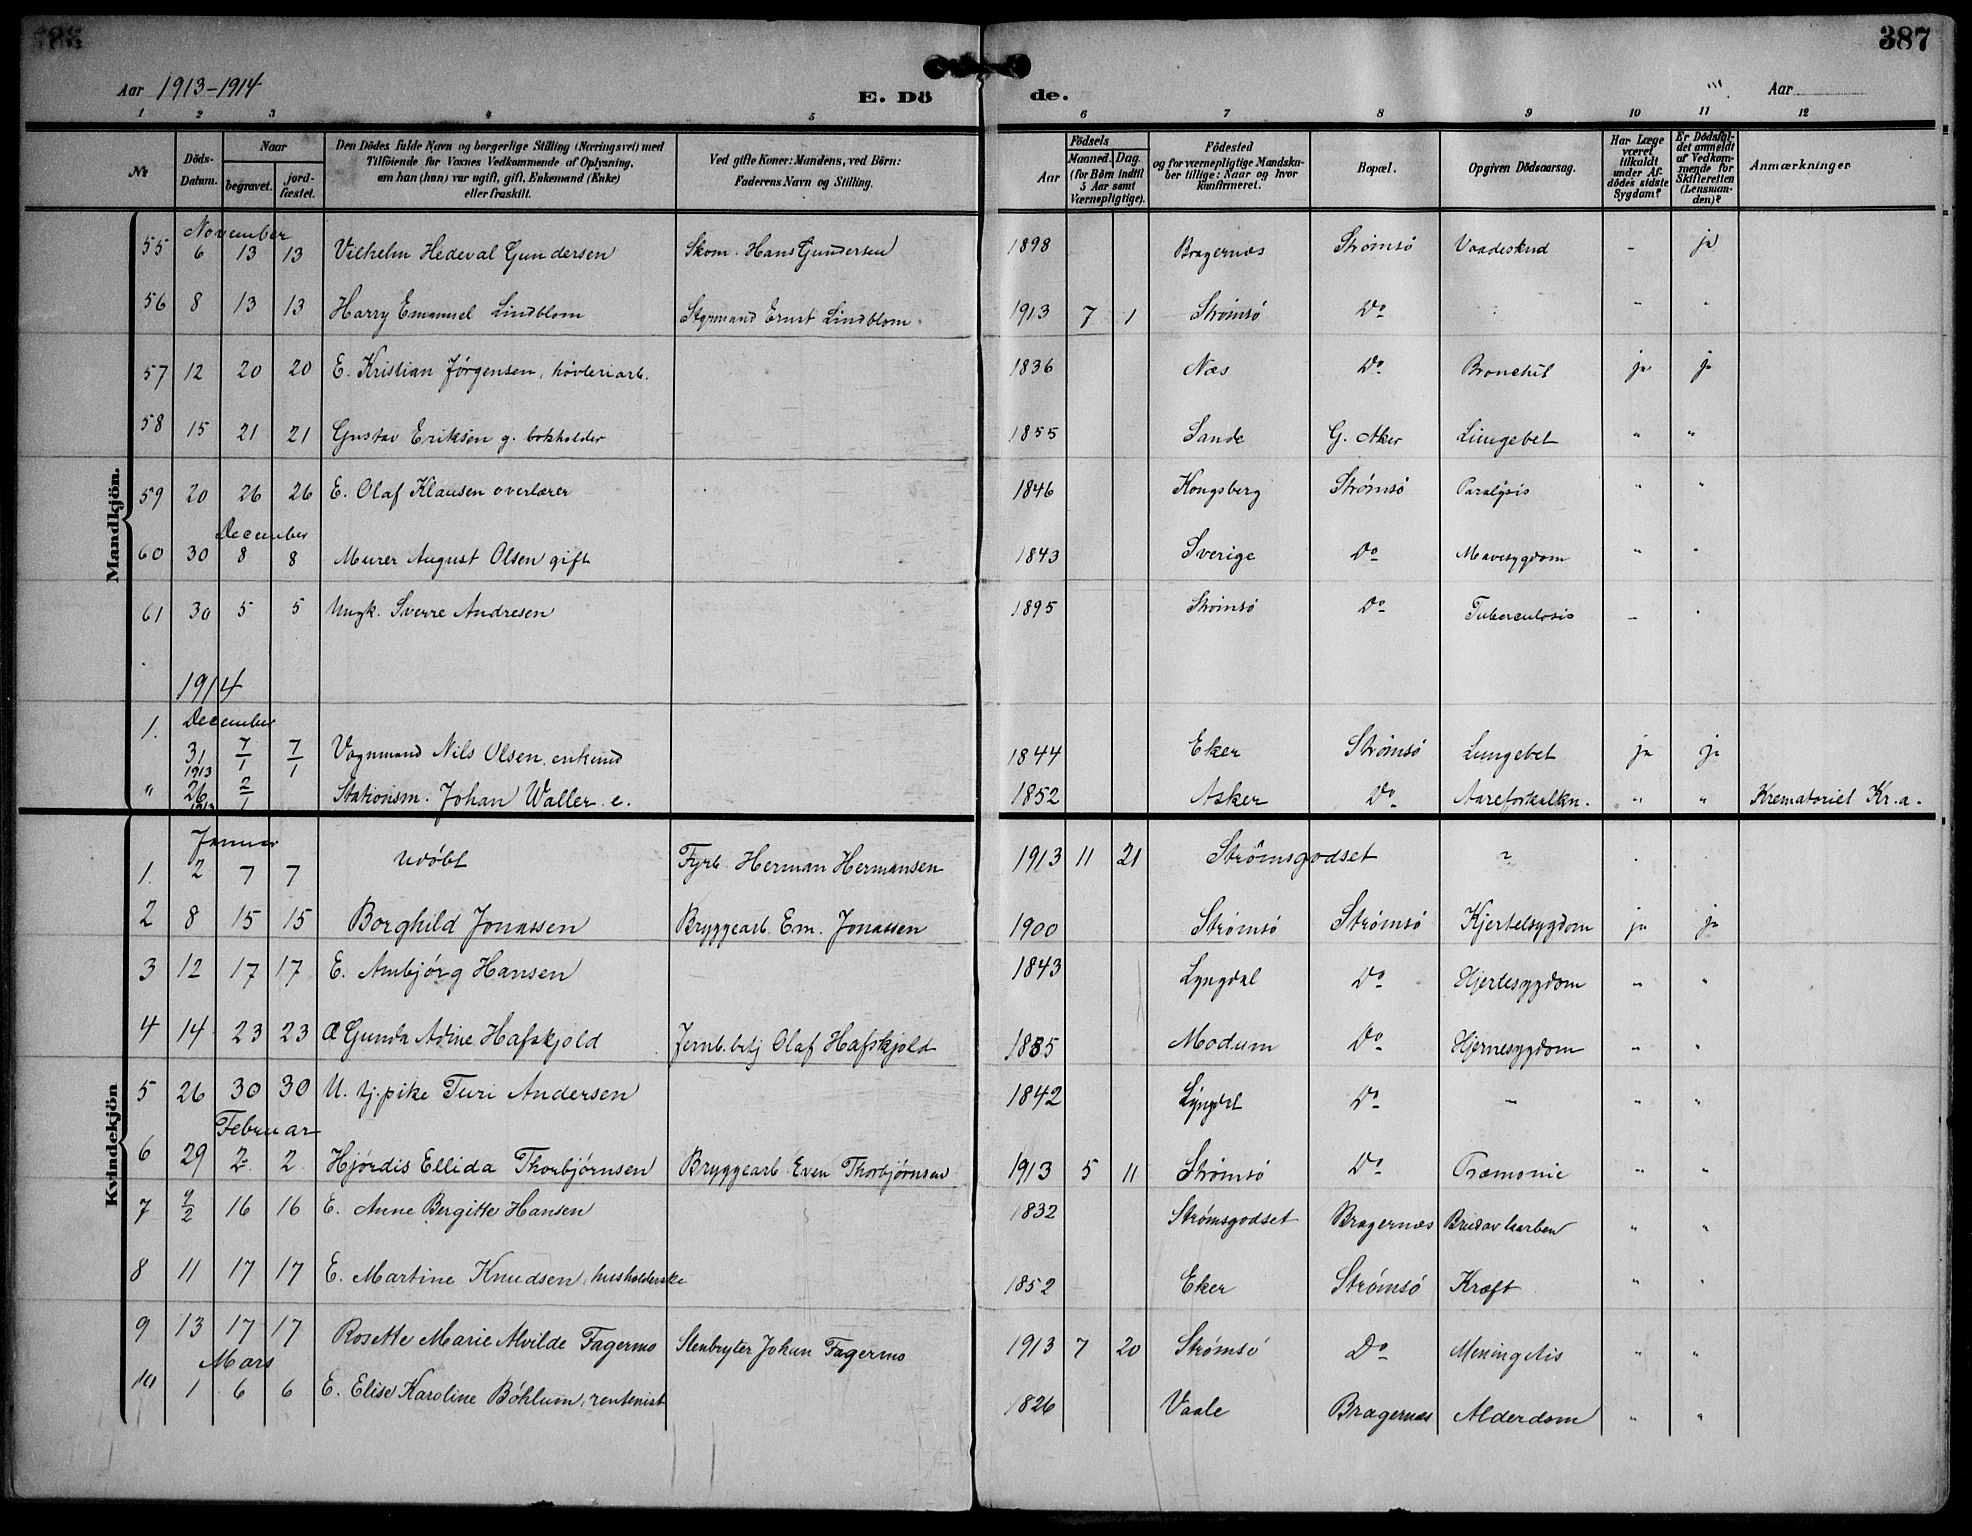 387
Aar 1913-1914
E. Dö de.
Aar
1 2 3 4 5 6 7 8 9 10 11 12
№ Döds-Datum. Naar begravet. jord-fæstet. Den Dödes fulde Navn og borgerlige Stilling (Næringsvei) med Tilföiende for Voxnes Vedkommende af Oplysning, om han (hun) var ugift, gift, Enkemand (Enke) eller fraskilt. Ved gifte Koner: Mandens, ved Börn: Faderens Navn og Stilling. Födsels Aar Maaned. Dag. (for Börn indtil 5 Aar samt Værnepligtige). Födested og for værnepligtige Mandskaber tillige: Naar og hvor konfirmeret. Bopæl. Opgiven Dödsaarsag. Har Læge været tilkaldt under Afdödes sidste Sygdom? Er Dödsfaldet anmeldt af Vedkommende for Skifteretten (Lensmanden)? Anmærkninger
Mandkjön.
November
55 6 13 13 Vilhelm Hedeval Gundersen Skom. Hans Gundersen 1898 Bragernæs Strømsö Vaadeskud - ja
56 8 13 13 Harry Emanuel Lindblom Styrmand Ernst Lindblom. 1913 7 1 Strømsö Do " "
57 12 20 20 E. Kristian Jørgensen, høvleriarb. 1836 Næs Do Bronchit ja ja
58 15 21 21 Gustav Eriksen g. bokholder 1855 Sande G. Aker Lungebet " "
59 20 26 26 E. Olaf Klausen overlærer 1846 Kongsberg Strømsö Paralysis " "
December
60 30 8 8 Murer August Olsen gift 1843 Sverige Do Mavesygdom " "
61 30 5 5 Ungk. Sverre Andresen 1895 Strømsö Do Tuberculosis -
1914
December
1. 31 1913 7/1 7/1 Vognmand Nils Olsen, enkmd 1844 Eker Strømsö Lungebet ja ja
" 26 1913 2/1 Stationsm. Johan Waller. e. 1852 Asker Do Aareforkalkn. " " Krematoriet Kr.a.
Kvindekjön
Januar
1. 2 7 7 udøbt Fyrb. Herman Hermansen 1913 11 21 Strømsgodset ~
2 8 15 15 Borghild Jonassen Bryggearb. Em. Jonassen 1900 Strømsö Strømsö Kjertelsygdom ja ja
3 12 17 17 E. Ambjørg Hansen 1843 Lyngdal Do Hjertesygdom " "
4 14 23 23 Gunda Adine Hafskjold Jernb.betj Olaf Hafskjold 1885 Modum Do Hjernesygdom " "
5 26 30 30 U. tj.pike Turi Andersen 1842 Lyngdal Do ~ " "
Februar
6 29 2 2 Hjørdis Ellida Thorbjørnsen Bryggearb. Even Thorbjørnsen 1913 5 11 Strømsö Do " "
7 9/2 16 16 E. Anne Bergitte Hansen 1832 Strømsgodset Bragernæs Brud av laarben " "
8 11 17 17 E. Martine Knudsen, husholderske 1852 Eker Strømsö Kræft " "
9 13 17 17 Rosette Marie Alvilde Fagermo Stenbryter Johan Fagermo 1913 7 20 Strømsö Do Meningitis " "
Mars
10 1 6 6 E. Elise Karoline Bøhlum, rentenist 1826 Vaale Bragernæs Alderdom " "